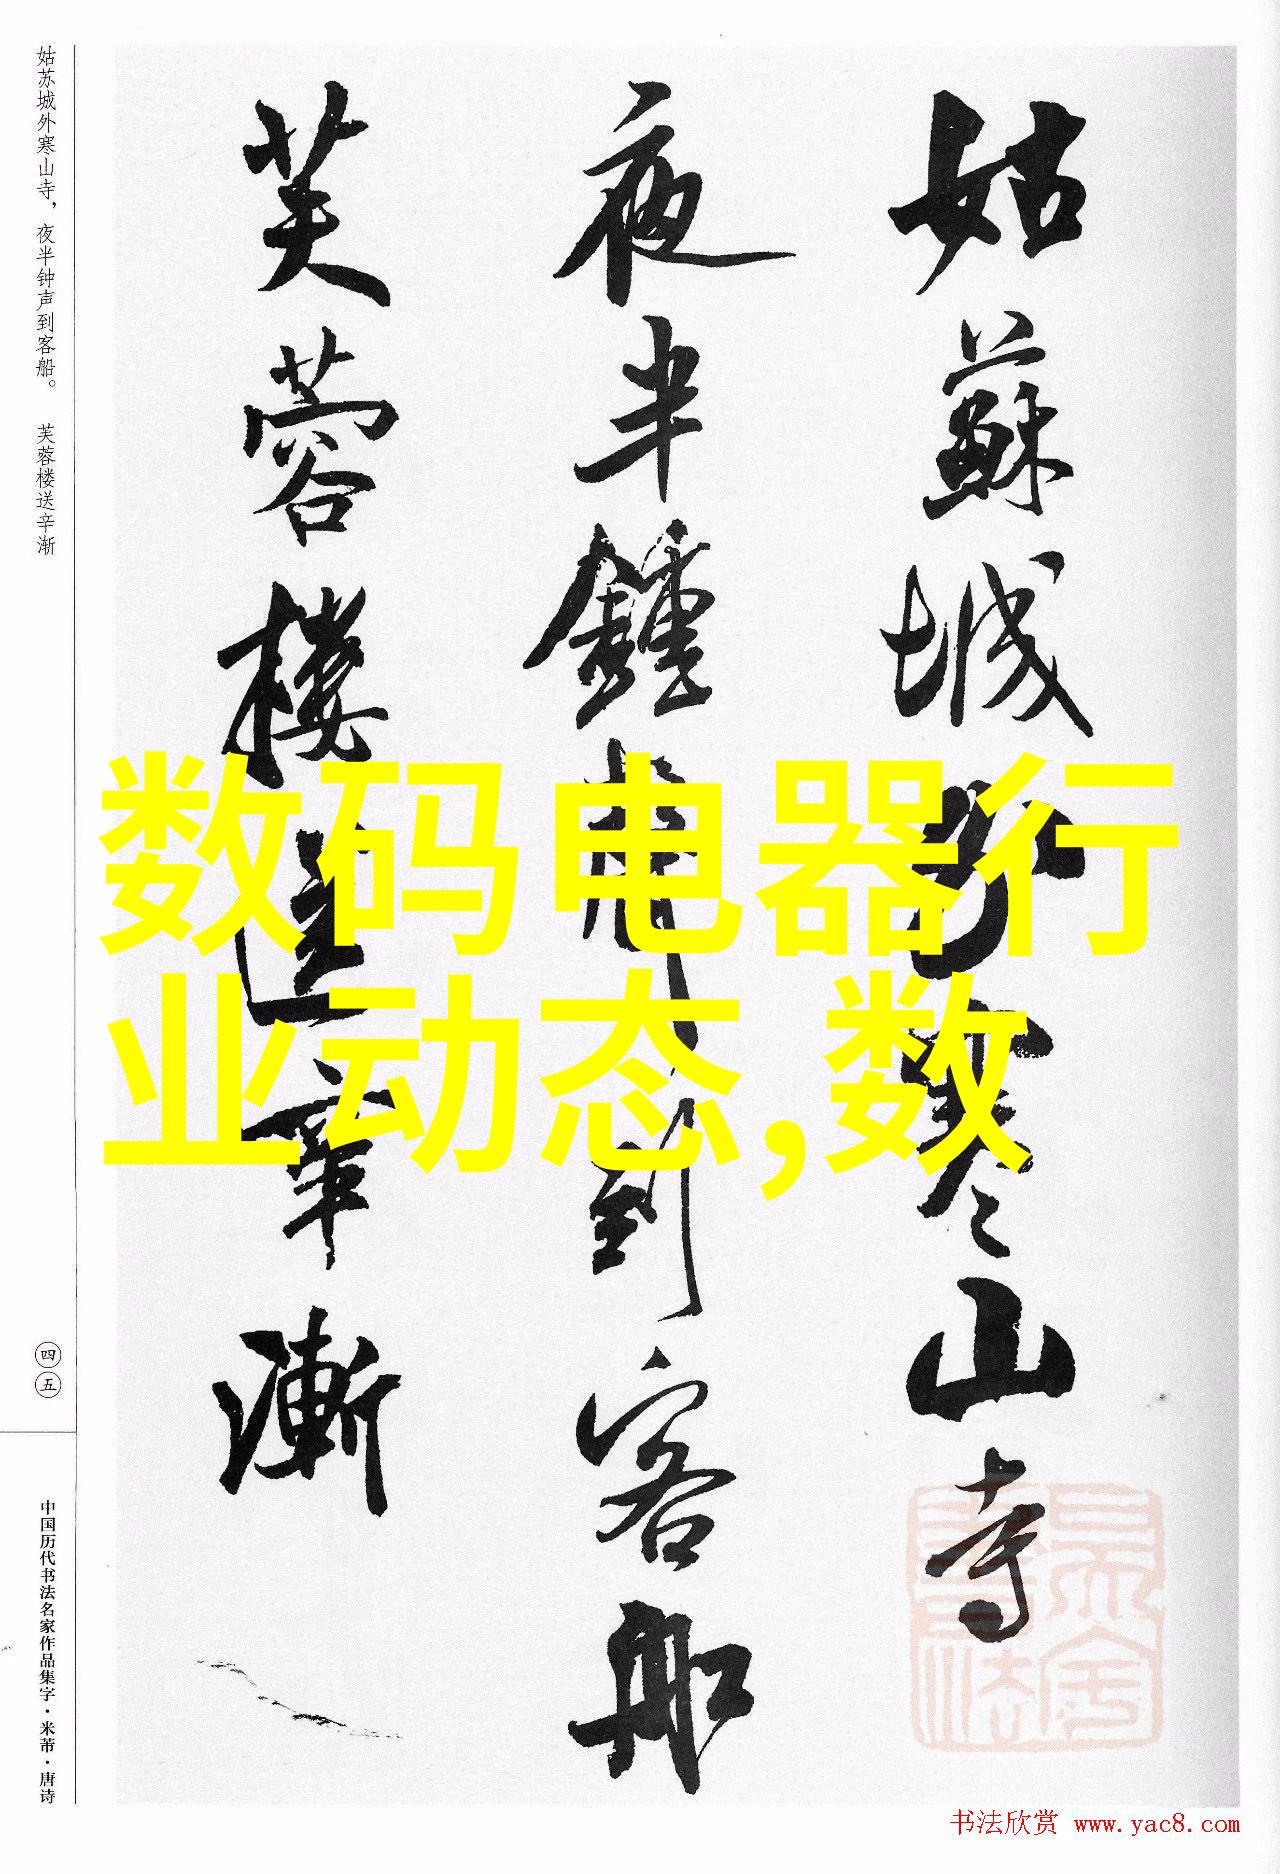 姑苏城外寒山寺，夜半钟声到客船。 芙蓉楼送辛渐
姑蘇城外寒山寺
夜半鍾聲到客船
芙蓉樓送辛漸
数码电器行
业动态,数
四五
中国历代书法名家作品集字·米芾·唐诗
书法欣赏 www.yac8.com